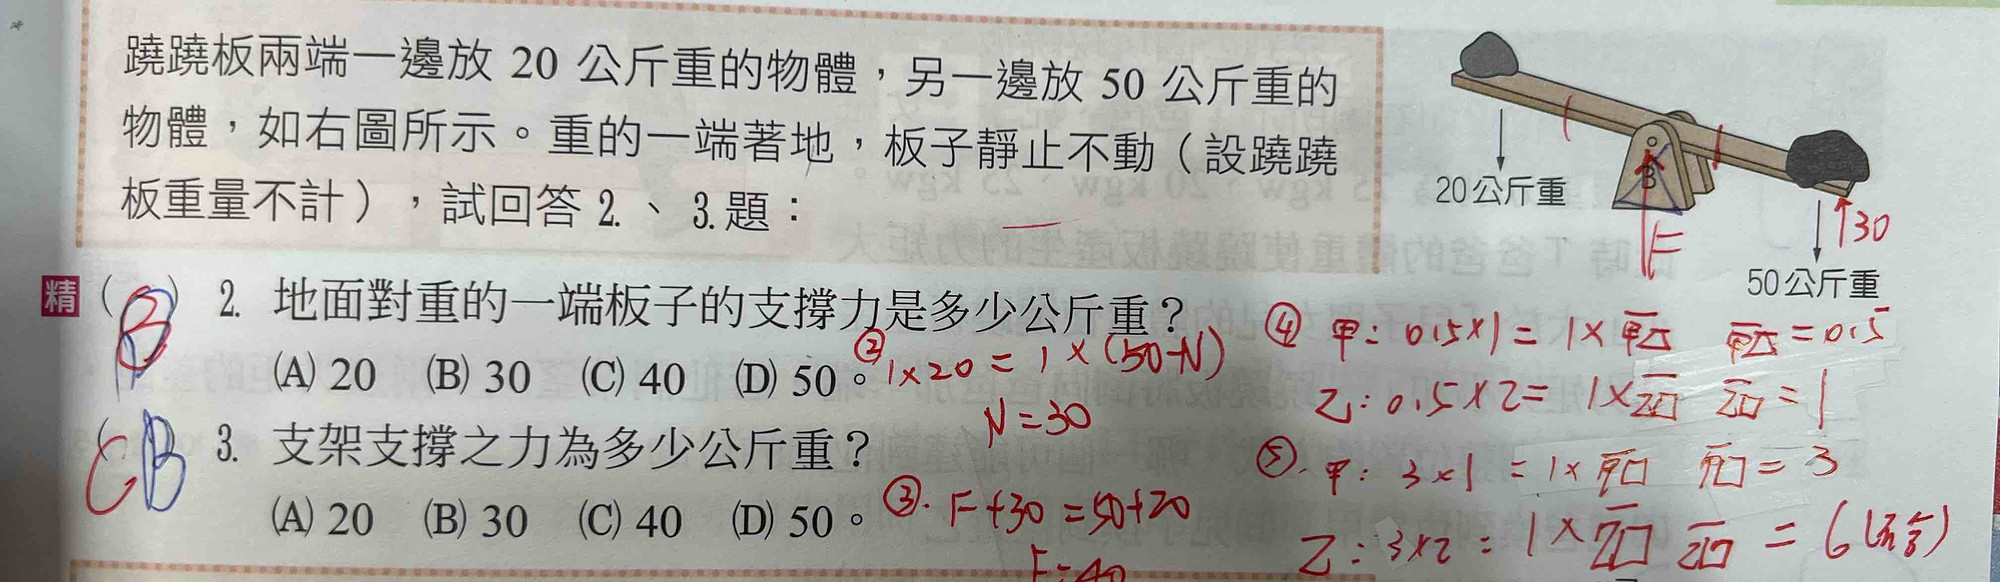 蹺蹺板兩端一邊放 20 公斤重的物體，另一邊放 50 公斤重的
物體，如右圖所示。重的一端著地，板子靜止不動（設蹺蹺
板重量不計），試回答 2.、3.題：
20公斤重
B
F
30
50公斤重
精 ( B ) 2. 地面對重的一端板子的支撐力是多少公斤重？
(A) 20 (B) 30 (C) 40 (D) 50。
② 1×20 = 1×(50-N)
N=30
( C B 3. 支架支撐之力為多少公斤重？
(A) 20 (B) 30 (C) 40 (D) 50。
③. F+30=50+20
F=40
④ 甲: 0.5×1=1×甲凸 甲凸=0.5
乙: 0.5×2=1× =1
⑤. 甲: 3×1=1× =3
乙: 3×2=1× =6